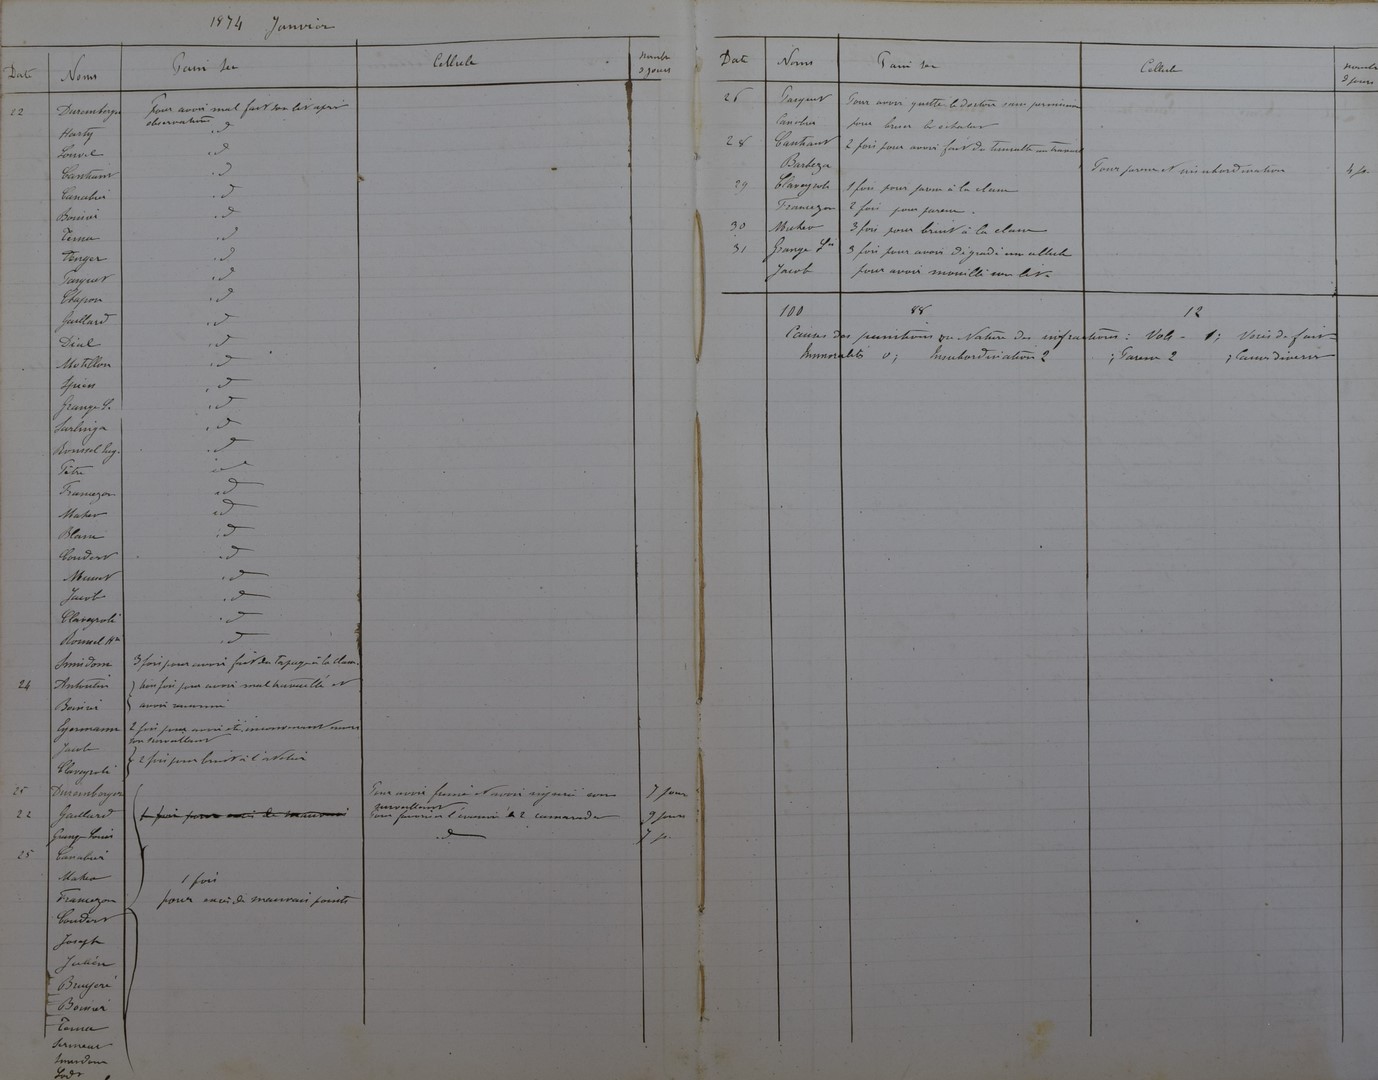 1874 Janvier
Date Noms Pain sec Cellule Nombre de jours
22 Duremberger Pour avoir mal fait son lit après
observations
Harty id
Louvel id
Canthant id
Canabier id
Boirier id
Terna id
Unger id
Pargeut id
Chapon id
Gaillard id
Dial id
Motillon id
Spies id
Grange L. id
id
Roussel Eug. id
Pètre id
Francezon id
Maheo id
Blanc id
Coudert id
id
Jacob id
Claveyrolé id
Roussel id
Smidom 3 fois pour avoir fait du tapage à la classe
24 Antoutin 1 fois pour avoir mal travaillé et
Boirier avoir
Germann 2 fois pour avoir été inconvenant envers
son surveillant
Jacob
Claveyrolé 2 fois pour bruit à l'atelier
25 Duremberger Pour avoir fumé et avoir injurié son
surveillant 7 jours
22 Gaillard 1 fois pour excès de mauvais Pour favoriser l'évasion de 2 camarades 9 jours
Grange Louis id 7 jo.
25 Canabier
Maheo 1 fois
Francezon pour excès de mauvais points
Coudert
Joseph
Julien
Bruyère
Boirier
Terna
Sermeur
Smidom
Date Noms Pain sec Cellule Nombre de jours
26 Pargeut Pour avoir quitté le docteur sans permission
Canoba pour
28 Canthant 2 fois pour avoir fait du tumulte au travail
Barbeza Pour paresse et insubordination 4 jo.
29 Claveyrolé 1 fois pour paresse à la classe
Francezon 2 fois pour paresse.
30 Maheo 3 fois pour bruit à la classe
31 Grange Ls 3 fois pour avoir dégradé une cellule
Jacob pour avoir mouillé son lit.
100 88 12
Causes des punitions ou Nature des infractions : Vols - 1; Voies de fait
Immoralités 0; Insubordination 2 ; Paresse 2 ; Causes diverses